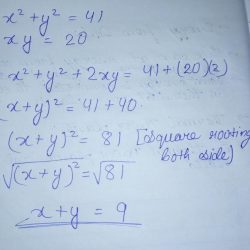 x² + y² = 41
xy = 20
x² + y² + 2xy = 41 + (20)(2)
(x + y)² = 41 + 40
(x + y)² = 81 [square rooting
both side]
√(x + y)² = √81
x + y = 9